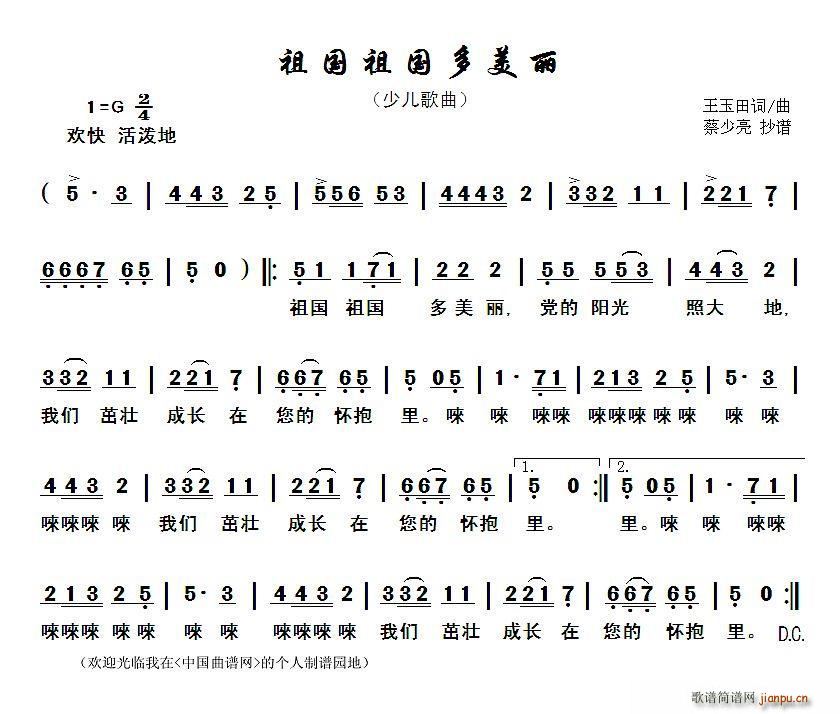 祖国祖国多美丽
（少儿歌曲）
1=G 2/4
王玉田词/曲
蔡少亮 抄谱
欢快 活泼地
( 5· 3 | 443 25 | 5556 53 | 4443 2 | 3332 11 | 2221 7 |
6667 65 | 5 0 ) |: 51 171 | 222 2 | 55 553 | 443 2 |
祖国 祖国 多美丽, 党的 阳光 照大 地,
332 11 | 221 7 | 667 65 | 5 05 | 1· 71 | 213 25 | 5· 3 |
我们 茁壮 成长 在 您的 怀抱 里。唻 唻 唻唻 唻唻唻唻唻 唻 唻
1. 2.
443 2 | 332 11 | 221 7 | 667 65 | 5 0 :| 5 05 | 1· 71 |
唻唻唻 唻 我们 茁壮 成长 在 您的 怀抱 里。 里。唻 唻 唻唻
213 25 | 5· 3 | 443 2 | 332 11 | 221 7 | 667 65 | 5 0 :|
唻唻唻唻唻 唻 唻 唻唻唻 唻 我们 茁壮 成长 在 您的 怀抱 里。 D.C.
（欢迎光临我在<中国曲谱网>的个人制谱园地）
歌谱简谱网 jianpu.cn